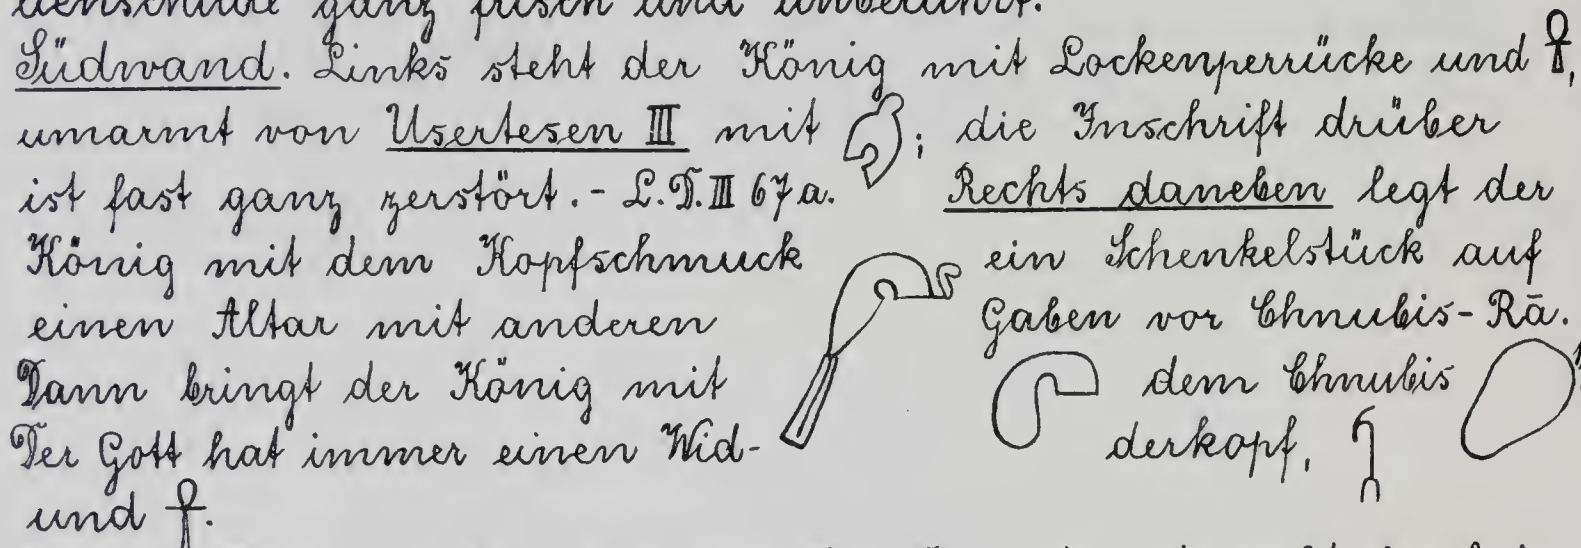 ganz frisch und unberührt.
Südwand. Links steht der König mit Lockenperrücke und ☥,
umarmt von Usertesen III mit ; die Inschrift drüber
ist fast ganz zerstört. - L.D. III 67a. Rechts daneben legt der
König mit dem Kopfschmuck ein Schenkelstück auf
einen Altar mit anderen Gaben vor Chnubis-Rā.
Dann bringt der König mit dem Chnubis
Der Gott hat immer einen Wid- derkopf,
und ☥.